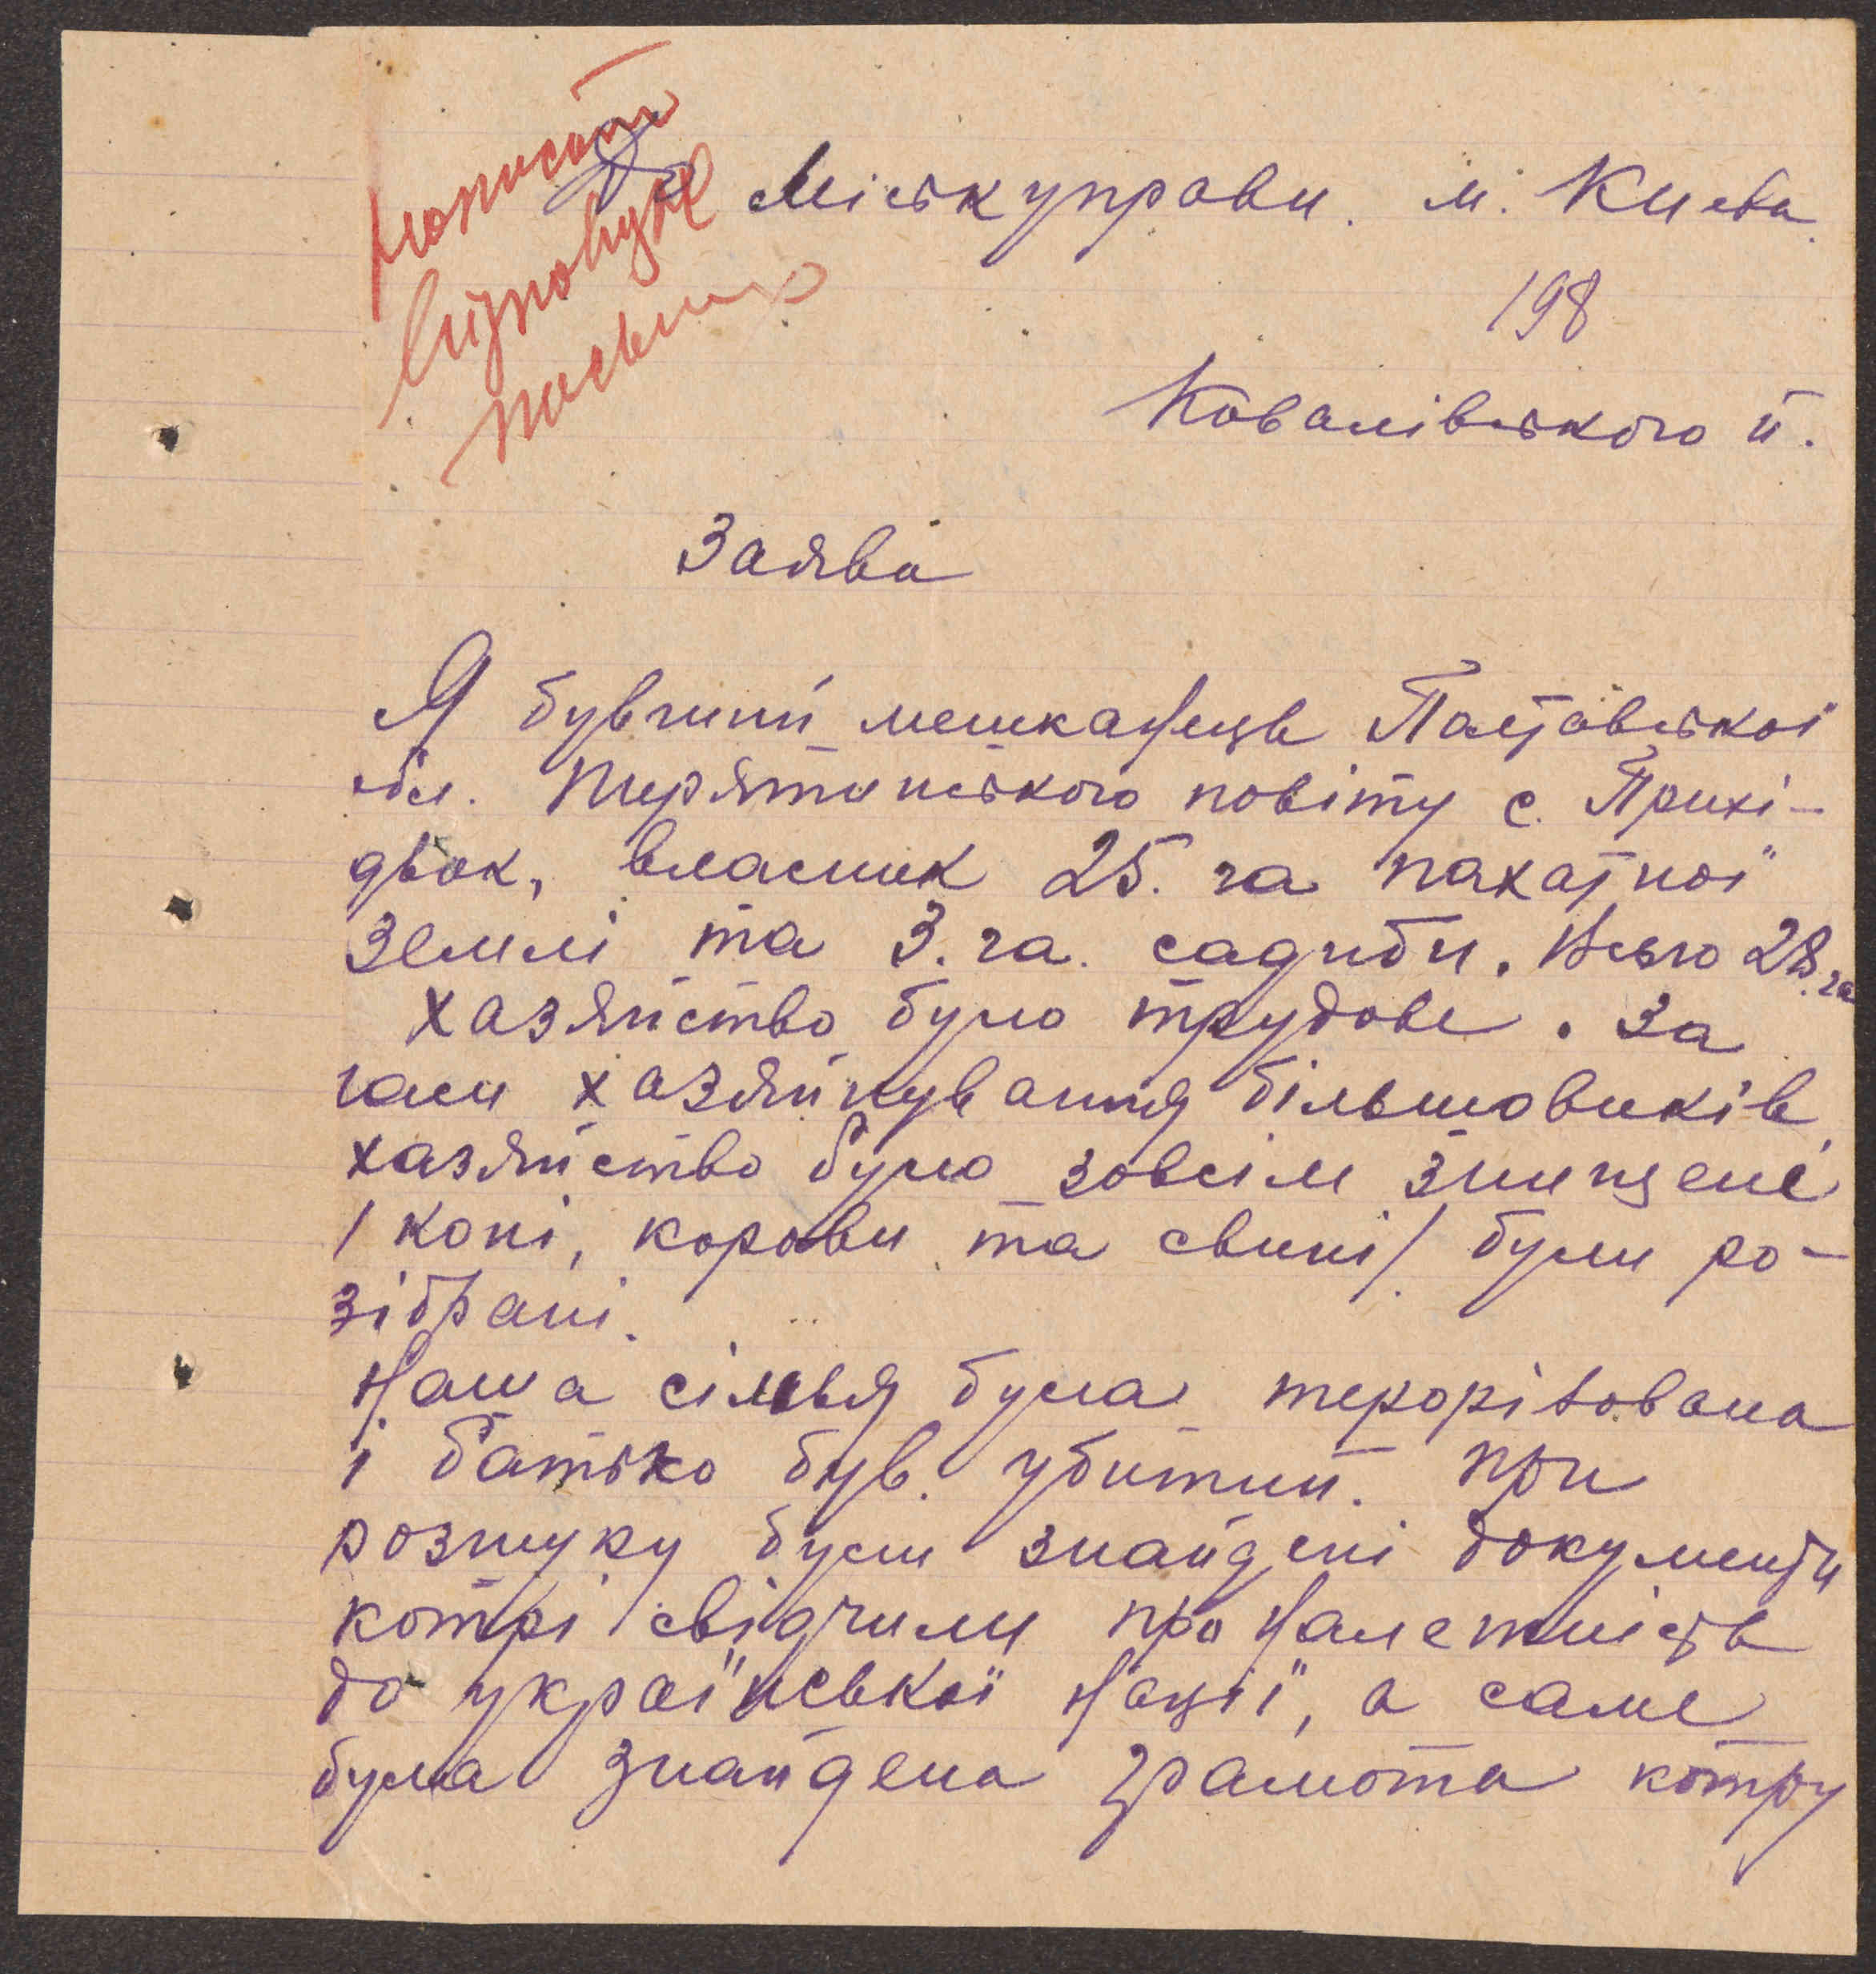 написать
відповідь
До Міськуправи. м. Києва.
198
Ковалівського й.
Заява
Я бувчий мешканець Полтавської
обл. Пирятинського повіту с. Прихі-
дьок, власник 25. га пахатної
землі та 3. га. садиби. Всього 28. га
хазяйство було трудове. За
часи хазяйнування більшовиків
хазяйство було зовсім знищене
/коні, корови та свині/ були ро-
зібрані.
Наша сімья була терорізована
і батько був убитий. При
розшуку були знайдені документи
котрі свідчили про налетність
до української нації, а саме
була знайдена грамота котру